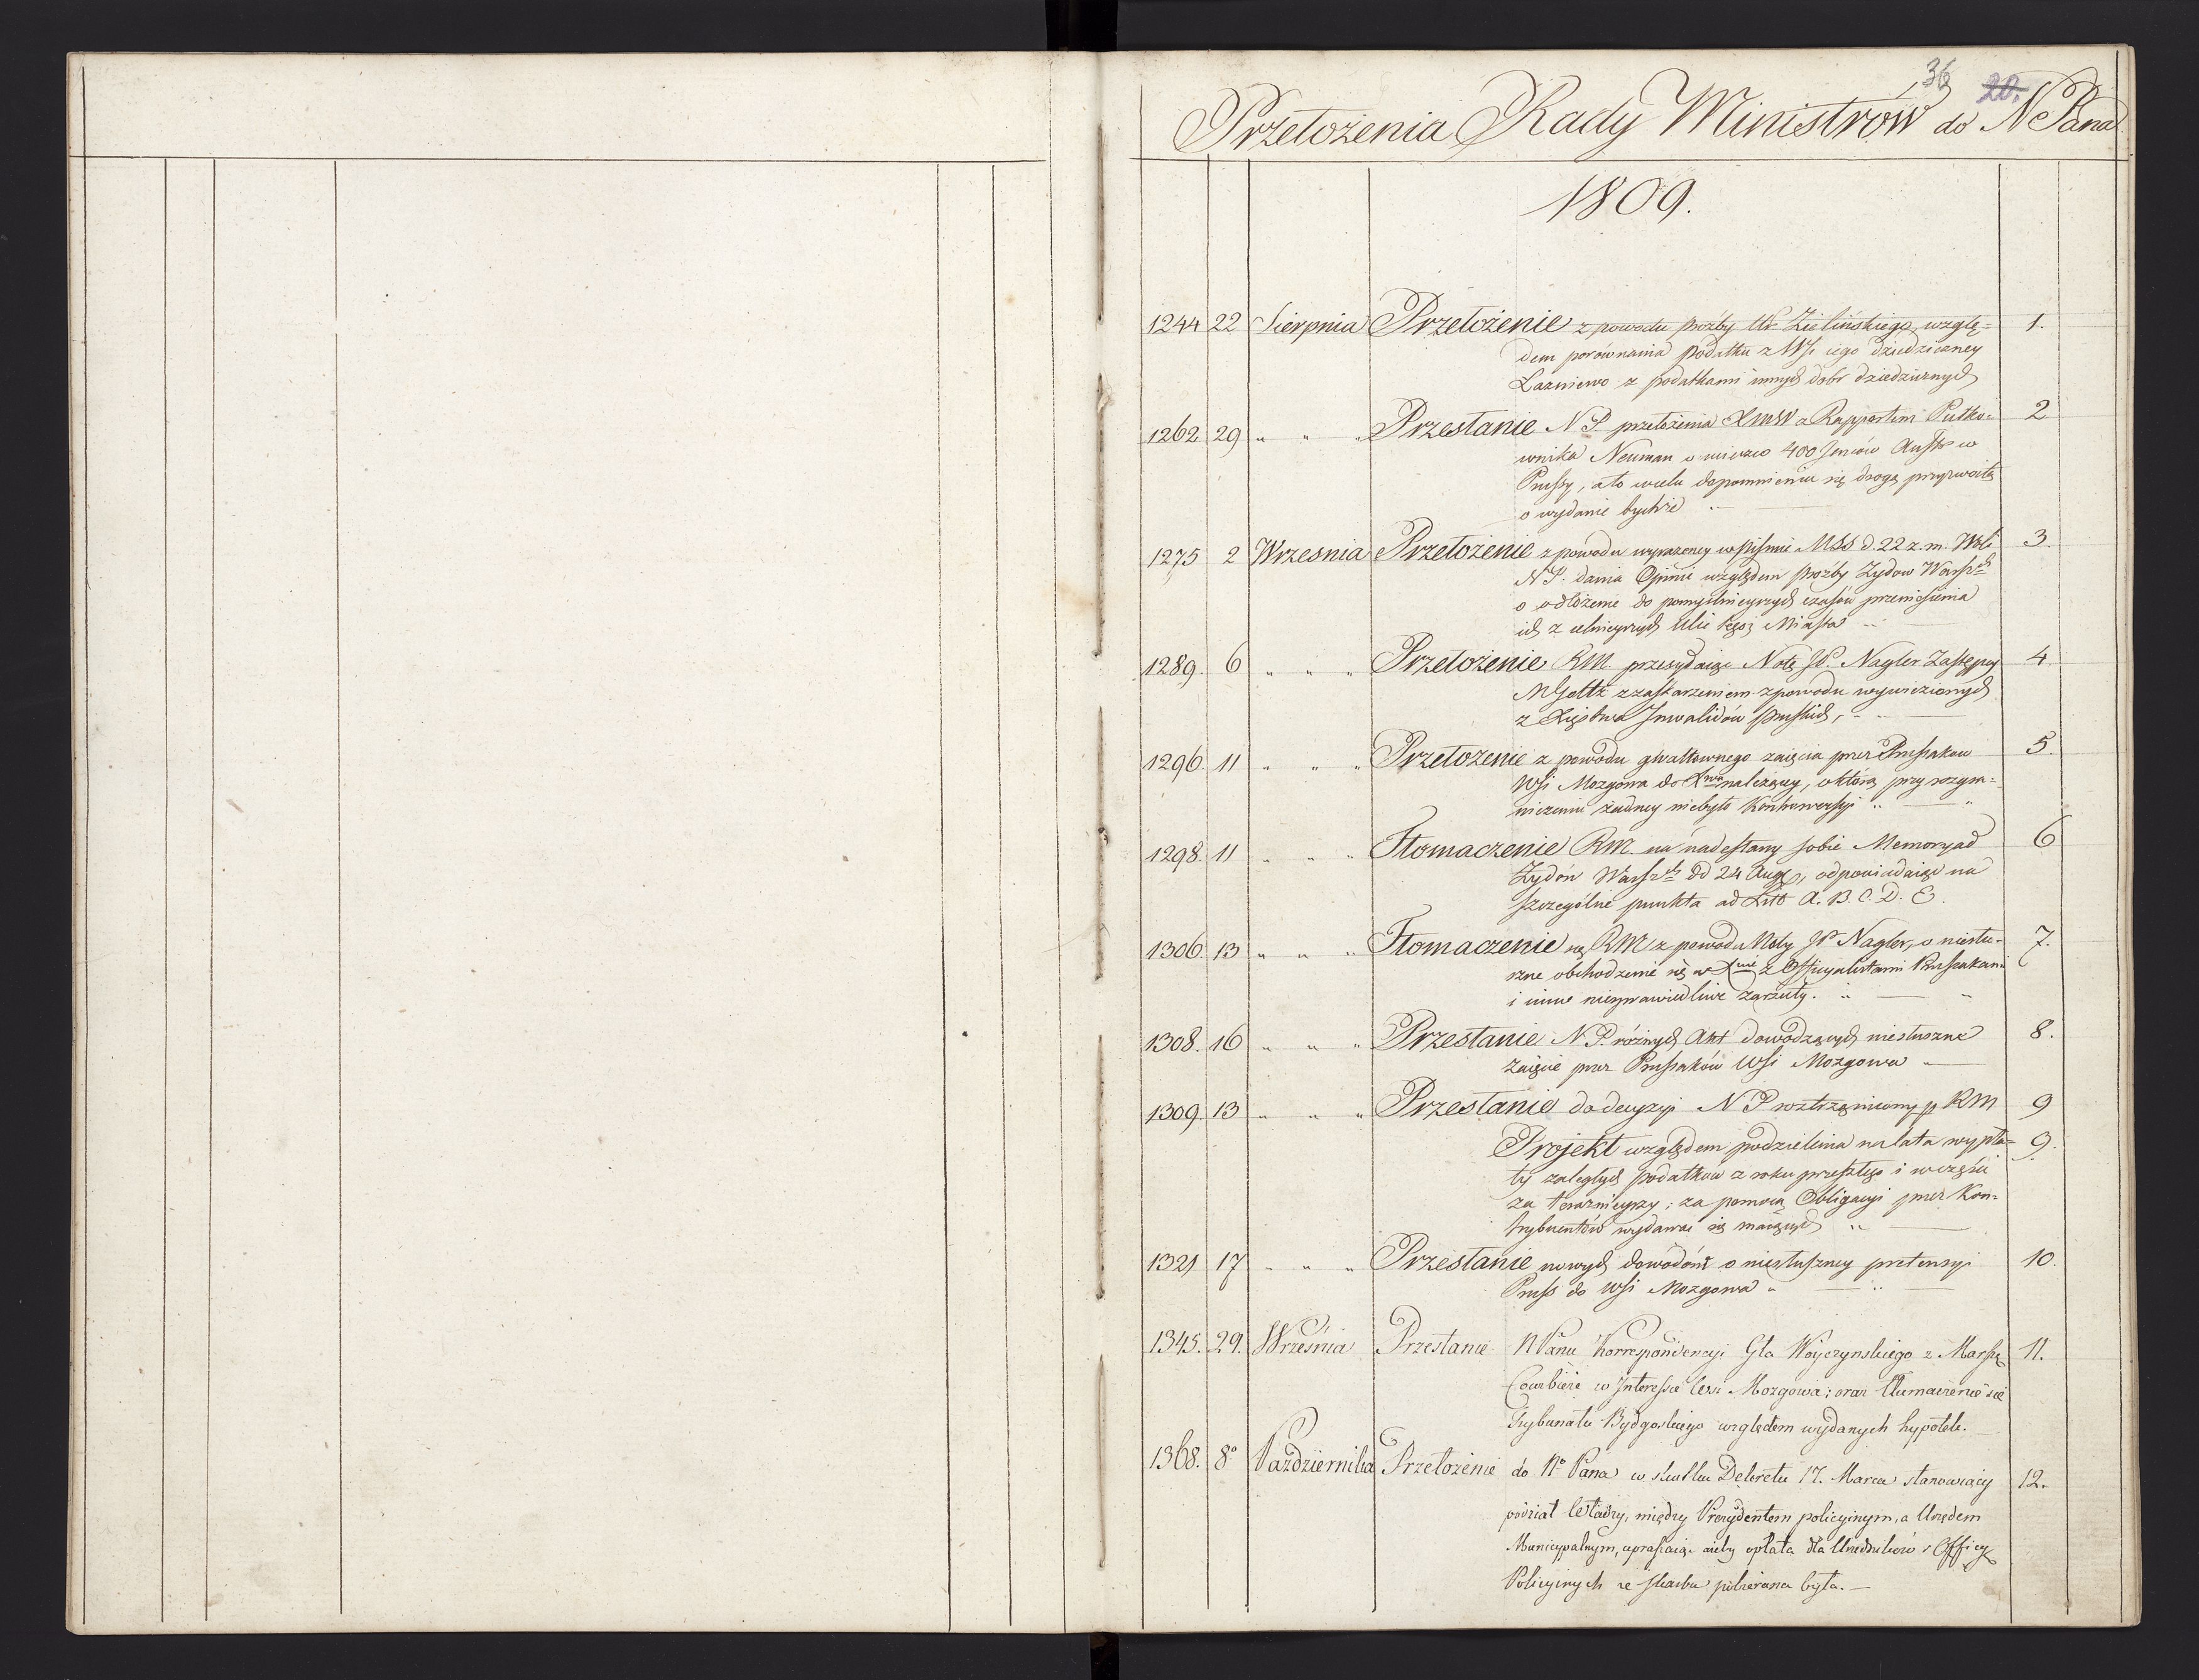 36 20.
Przełożenia Rady Ministrów do N Pana
1809.
1244 22 Sierpnia Przełożenie z powodu proźby Ur Zielińskiego, wzglę= 1.
dem porównania podatku z Wsi iego dziedziczney
Łazniewo z podatkami innych dobr dziedzicznych
1262 29 " " " Przesłanie N P. przełożenia z Rapportem Putko= 2
wnika Neuman o 400 Jenców Austr w
Prussy, a to wcelu dopomnienia się drogą przyzwoitą
o wydanie tychże
1275 2 Wrzesnia Przełożenie z powodu wyrażoney w piśmie MSS d. 22 z. m. Woli 3.
N P. dania Opinii względem proźby Zydow Warsz
o odłożenie do pomyślnieyszych czasów przeniesienia
ich z celnieyszych Ulic tegoż Miasta
1289. 6 " " " Przełożenie RM. przesyłaiąc Notę JP. Nagler Zastępcy 4.
MGoltz z zaskarzeniem z powodu wywiezionych
z Xięstwa Inwalidów pruskich,
1296. 11 " " " Przełożenie z powodu gwałtownego zaięcia przez Prusakow 5.
Wsi Mozgowa do Xwa należący, o którą przy rozgra=
niczeniu żadney niebyło Kontrowersyi "
1298. 11 " " " Tłomaczenie RM. na nadesłany sobie Memoryał 6
Zydón Warsz dd 24 Aug, odpowiadaiąc na
szczególne punkta ad Litt A. B. C. D. E.
1306. 13 " " " Tłomaczenie się RM z powodu Noty JP Nagler, o niesłu= 7.
szne obchodzenie się w Xwie z Officyalistami Prusakami
i inne niesprawiedliwe zarzuty.
1308. 16 " " " Przesłanie N P. różnych Akt dowodzących niesłuszne 8.
zaięcie przez Prusaków Wsi Mozgowa
1309. 13 " " " Przesłanie do decyzyi N P roztrząśniony p RM 9
Projekt względem podzielenia na lata wypła= 9.
ty zaległych podatków z roku przeszłego i w części
za teraznieyszy; za pomocą Obligacyi przez Kon=
trybuentów wydawać się maiących "
1321 17 " " " Przesłanie nowych dowodów o niesłuszney pretensyi 10.
Pruss do Wsi Mozgowa "
1345. 29. Września Przesłanie NPanu Korrespondencyi Gła Woyczynskiego z Marsz 11.
Courbiere w Interessie Wsi Mozgowa; oraz tłumaczenie sie
Trybunału Bydgoskiego względem wydanych hypotek.
1368. 8° Października Przełożenie do N° Pana w skutku Dekretu 17. Marca stanowiący 12.
podział Władzy, między Prezydentem policyinym, a Urzędem
Municypalnym, upraszaiąc ażeby opłata dla Urzędników i Officy
Policyinych ze skarbu pobierana była.